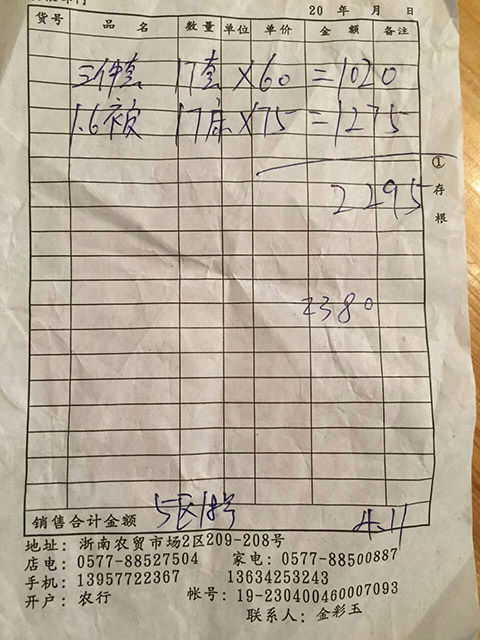 20 年 月 日
货号 品名 数量 单位 单价 金额 备注
三件套 17套 ×60 =1020
1.6被 17床 ×75 =1275
① 存根
2295
2380
销售合计金额 5区18号 4.11
地址: 浙南农贸市场2区209-208号
店电: 0577-88527504 家电: 0577-88500887
手机: 13957722367 13634253243
开户: 农行 帐号: 19-230400460007093
联系人: 金彩玉